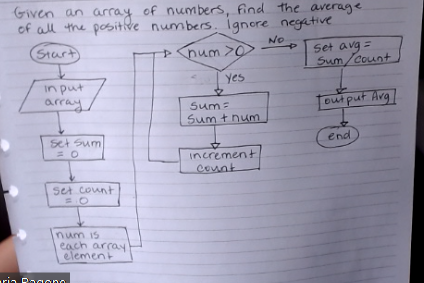 Given an array of numbers, find the average
of all the positive numbers. Ignore negative
Start
input
array
set sum
= 0
set count
= 0
num is
each array
element
num > 0
No
yes
sum =
sum + num
increment
count
set avg =
sum/count
output Avg
end